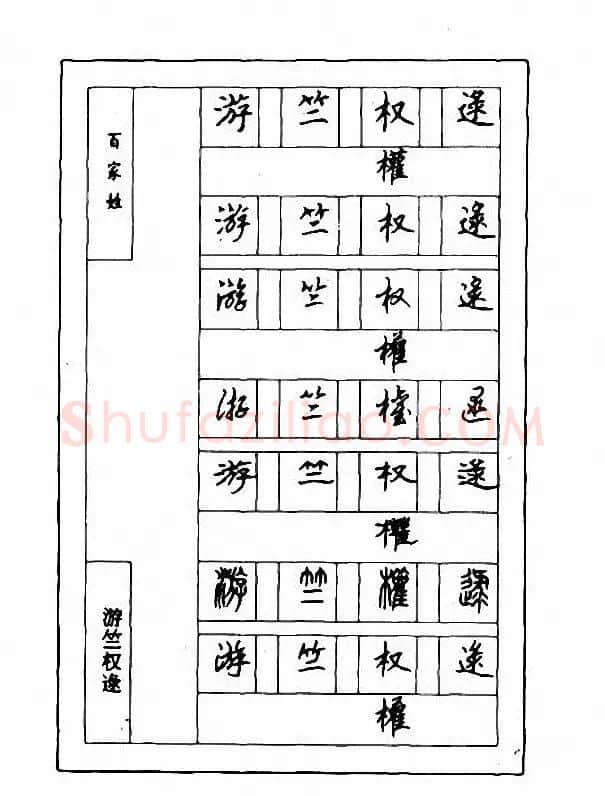 百家姓
游竺权逯
游 竺 权 逯
權
游 竺 权 逯
游 竺 权 逯
權
游 竺 權 逯
游 竺 权 逯
權
游 竺 權 逯
游 竺 权 逯
權
Shufaziliao.COM